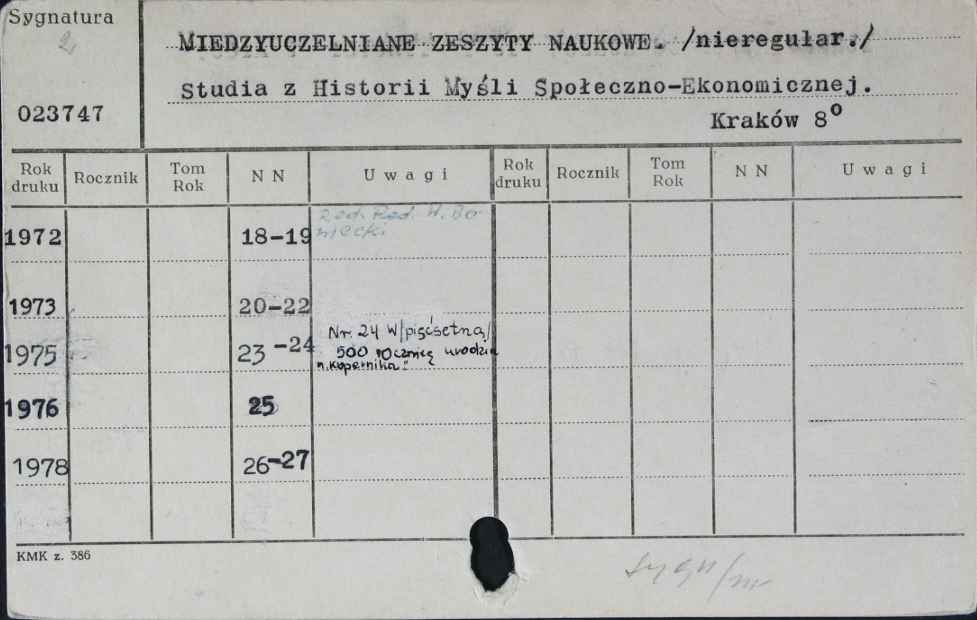 Sygnatura
MIEDZYUCZELNIANE ZESZYTY NAUKOWE. /nieregular./
Studia z Historii Myśli Społeczno-Ekonomicznej.
023747
Kraków 8º
Rok druku Rocznik Tom Rok N N Uwagi Rok druku Rocznik Tom Rok N N Uwagi
Red. H. Bo-
1972 18-19
1973 20-22
Nr. 24 W/pięćsetną/
1975 23-24 500 rocznicę urodzin
n. Kopernika"
1976 25
1978 26-27
KMK z. 386